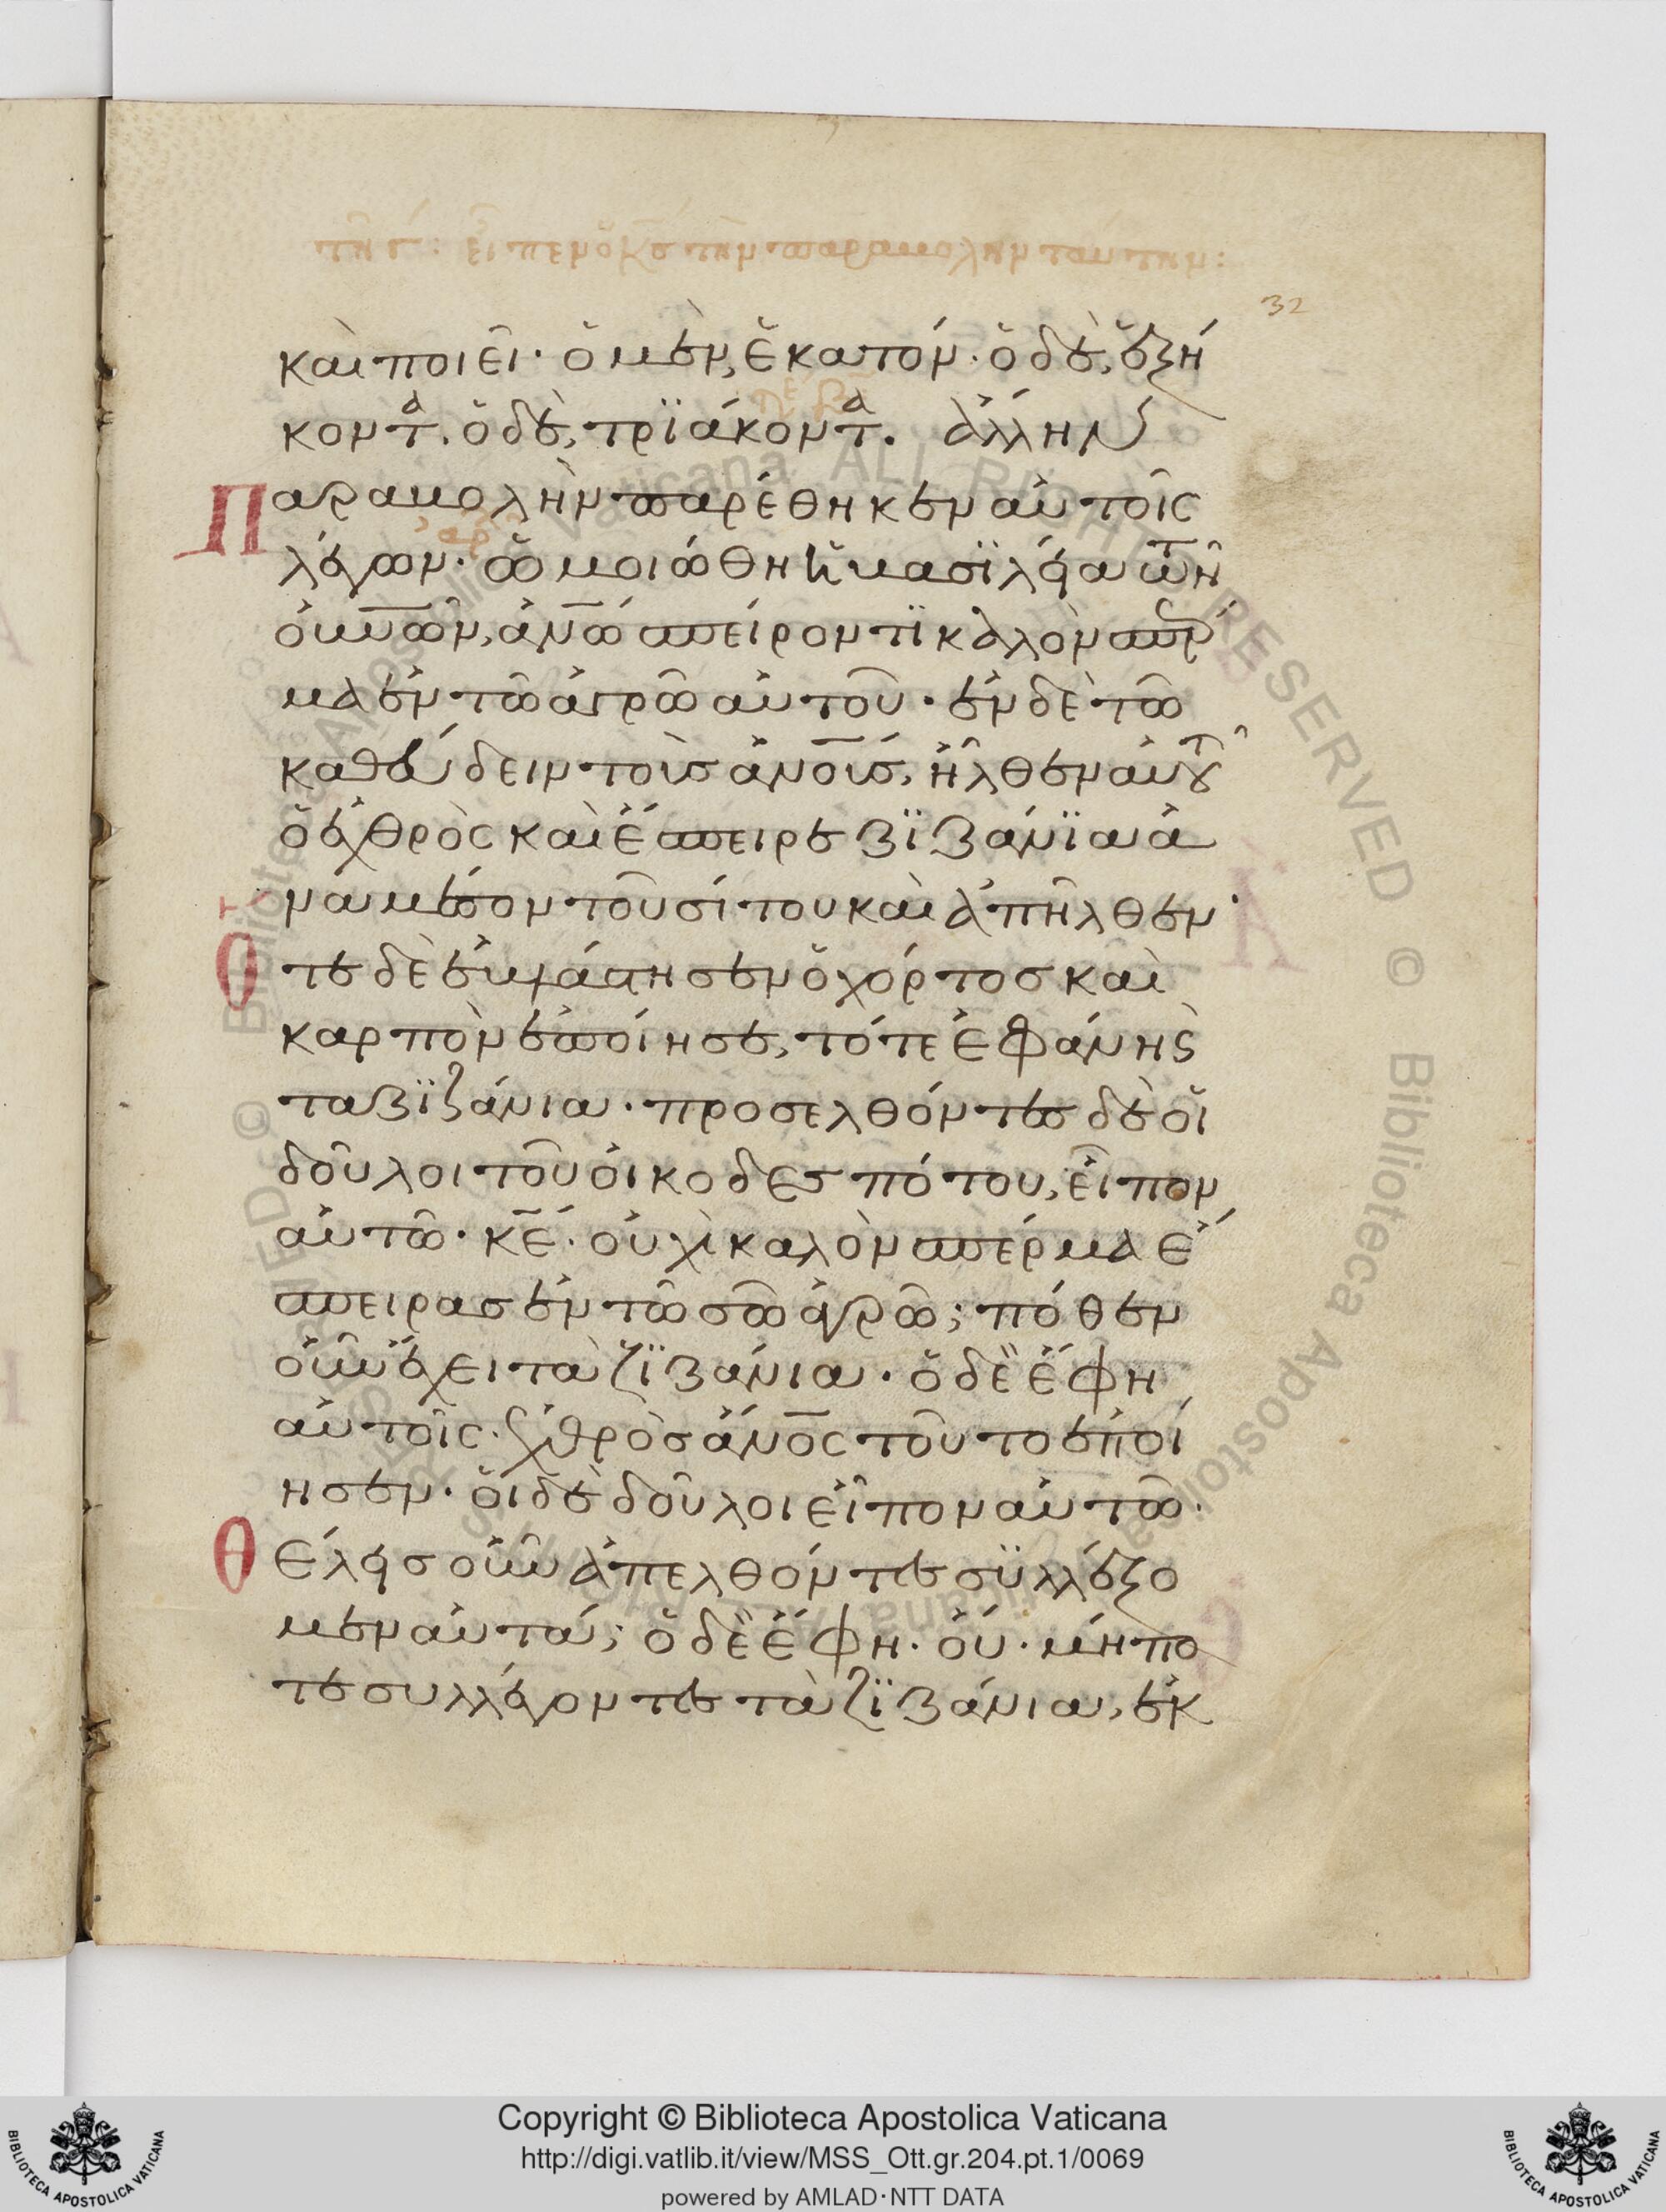 32
καὶ ποιεῖ· ὁ μὲν, ἑκατόν· ὁ δὲ, ἑξή
κοντ(α)· ὁ δὲ, τριάκοντ(α)· ἄλλην
Παραβολὴν παρέθηκεν αὐτοῖς
λέγων· ὡμοιώθη ἡ βασιλεία τῶν
οὐνῶν, ἀνω σπείροντι καλὸν σπέρ
μα ἐν τῶ ἀγρῶ αὐτοῦ· ἐν δὲ τῶ
καθεύδειν τοὺς ἀνους, ἦλθεν αὐτοῦ
ὁ ἐχθρὸς καὶ ἔσπειρε ζιζάνια ἀ
να μέσον τοῦ σίτου καὶ ἀπῆλθεν·
Ὅτε δὲ ἐβλάστησεν ὁ χόρτος καὶ
καρπὸν ἐποίησε, τότε ἐφάνη κ(αὶ)
τα ζιζάνια· προσελθόντες δὲ οἱ
δοῦλοι τοῦ οἰκοδεσπότου, εἶπον
αὐτῶ· κε· οὐχὶ καλὸν σπέρμα ἔ
σπειρας ἐν τῶ σῶ ἀγρῶ; πόθεν
οὖν ἔχει τὰ ζιζάνια· ὁ δὲ ἔφη
αὐτοῖς· ἐχθρὸς ἀνος τοῦτο ἐποί
ησεν· οἱ δὲ δοῦλοι εἶπον αὐτῶ·
Θέλεις οὖν ἀπελθόντες συλλέξο
μεν αὐτά; ὁ δὲ ἔφη· οὔ· μήπο
τε συλλέγοντες τὰ ζιζάνια, ἐκ
Copyright © Biblioteca Apostolica Vaticana
http://digi.vatlib.it/view/MSS_Ott.gr.204.pt.1/0069
powered by AMLAD·NTT DATA
BIBLIOTECA APOSTOLICA VATICANA
BIBLIOTECA APOSTOLICA VATICANA